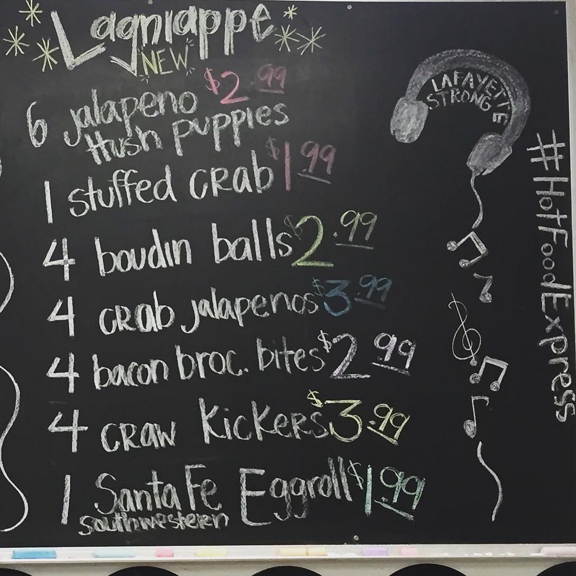 Lagniappe
NEW
6 jalapeno $2.99
Hush puppies
1 stuffed crab $1.99
4 boudin balls $2.99
4 crab jalapenos $3.99
4 bacon broc. bites $2.99
4 craw kickers $3.99
1 Santa Fe Eggroll $1.99
Southwestern
LAFAYETTE
STRONG
#HotFoodExpress